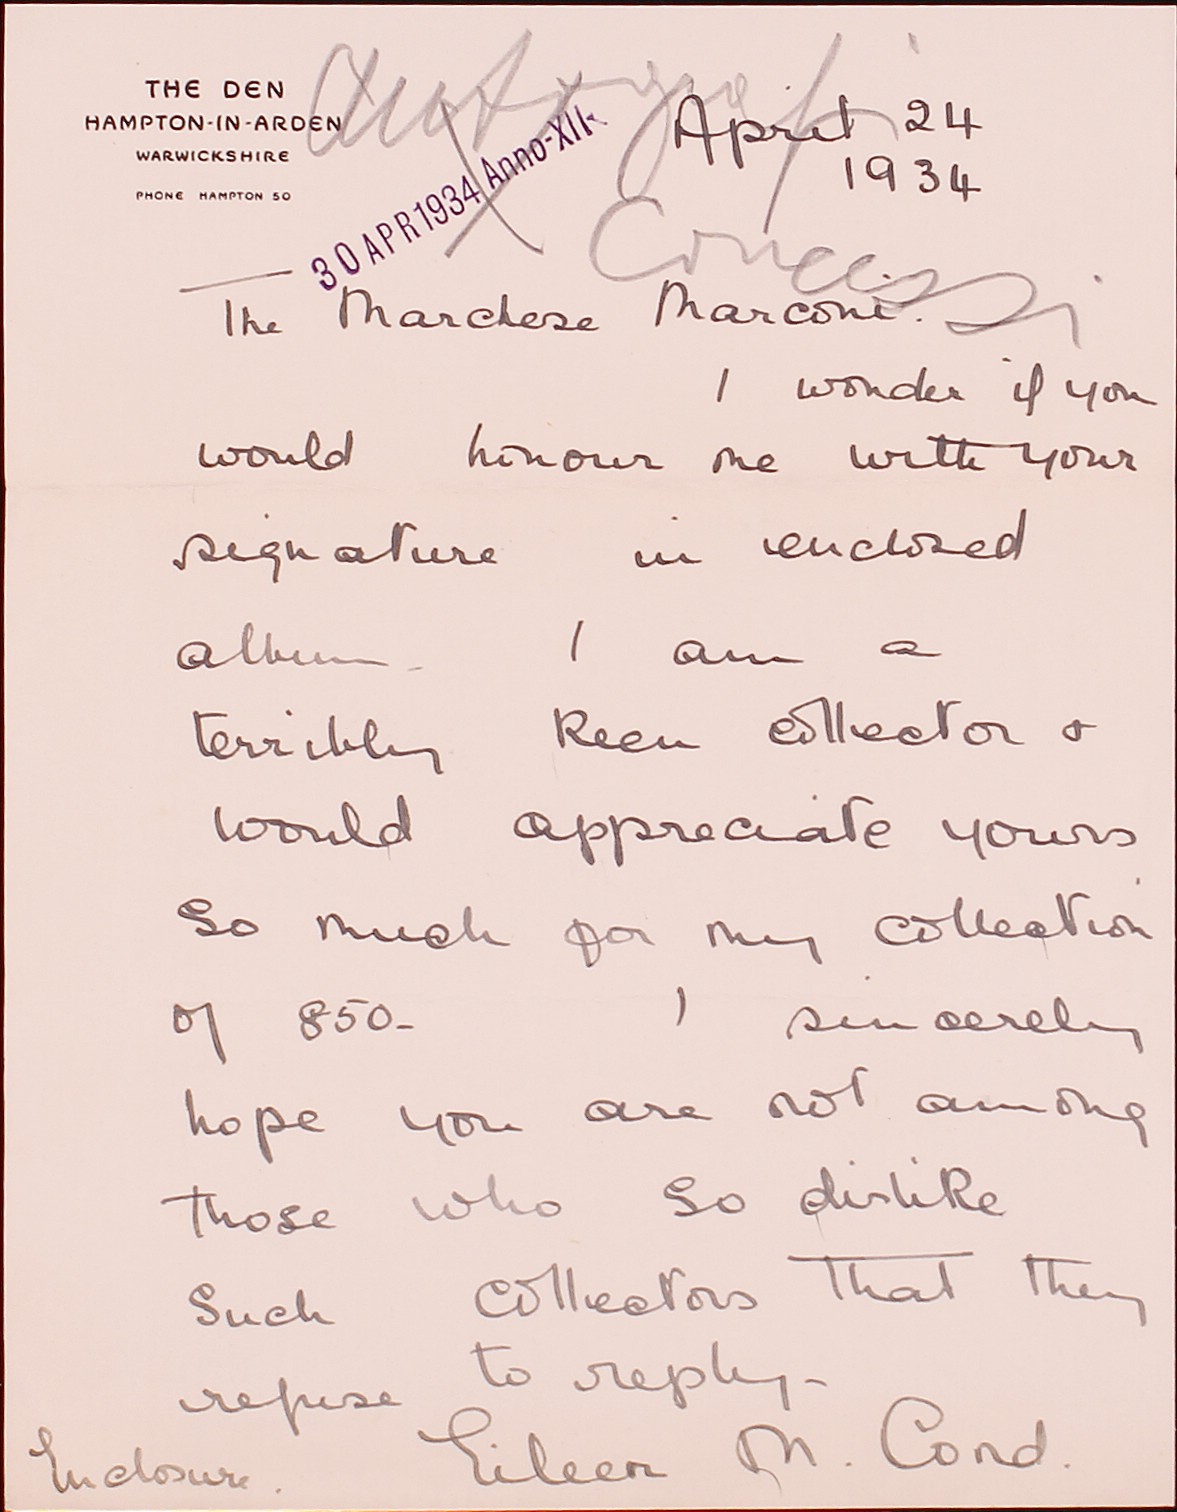 THE DEN
HAMPTON-IN-ARDEN
WARWICKSHIRE
PHONE HAMPTON 50
Autografi
Concessi
30 APR 1934 Anno-XII-
April 24
1934
The Marchese Marconi.
I wonder if you
would honour me with your
signature in enclosed
album - I am a
terribly keen collector &
would appreciate yours
so much for my collection
of 850 - I sincerely
hope you are not among
those who so dislike
such collectors that they
refuse to reply -
Eileen M. Cond.
Enclosure.